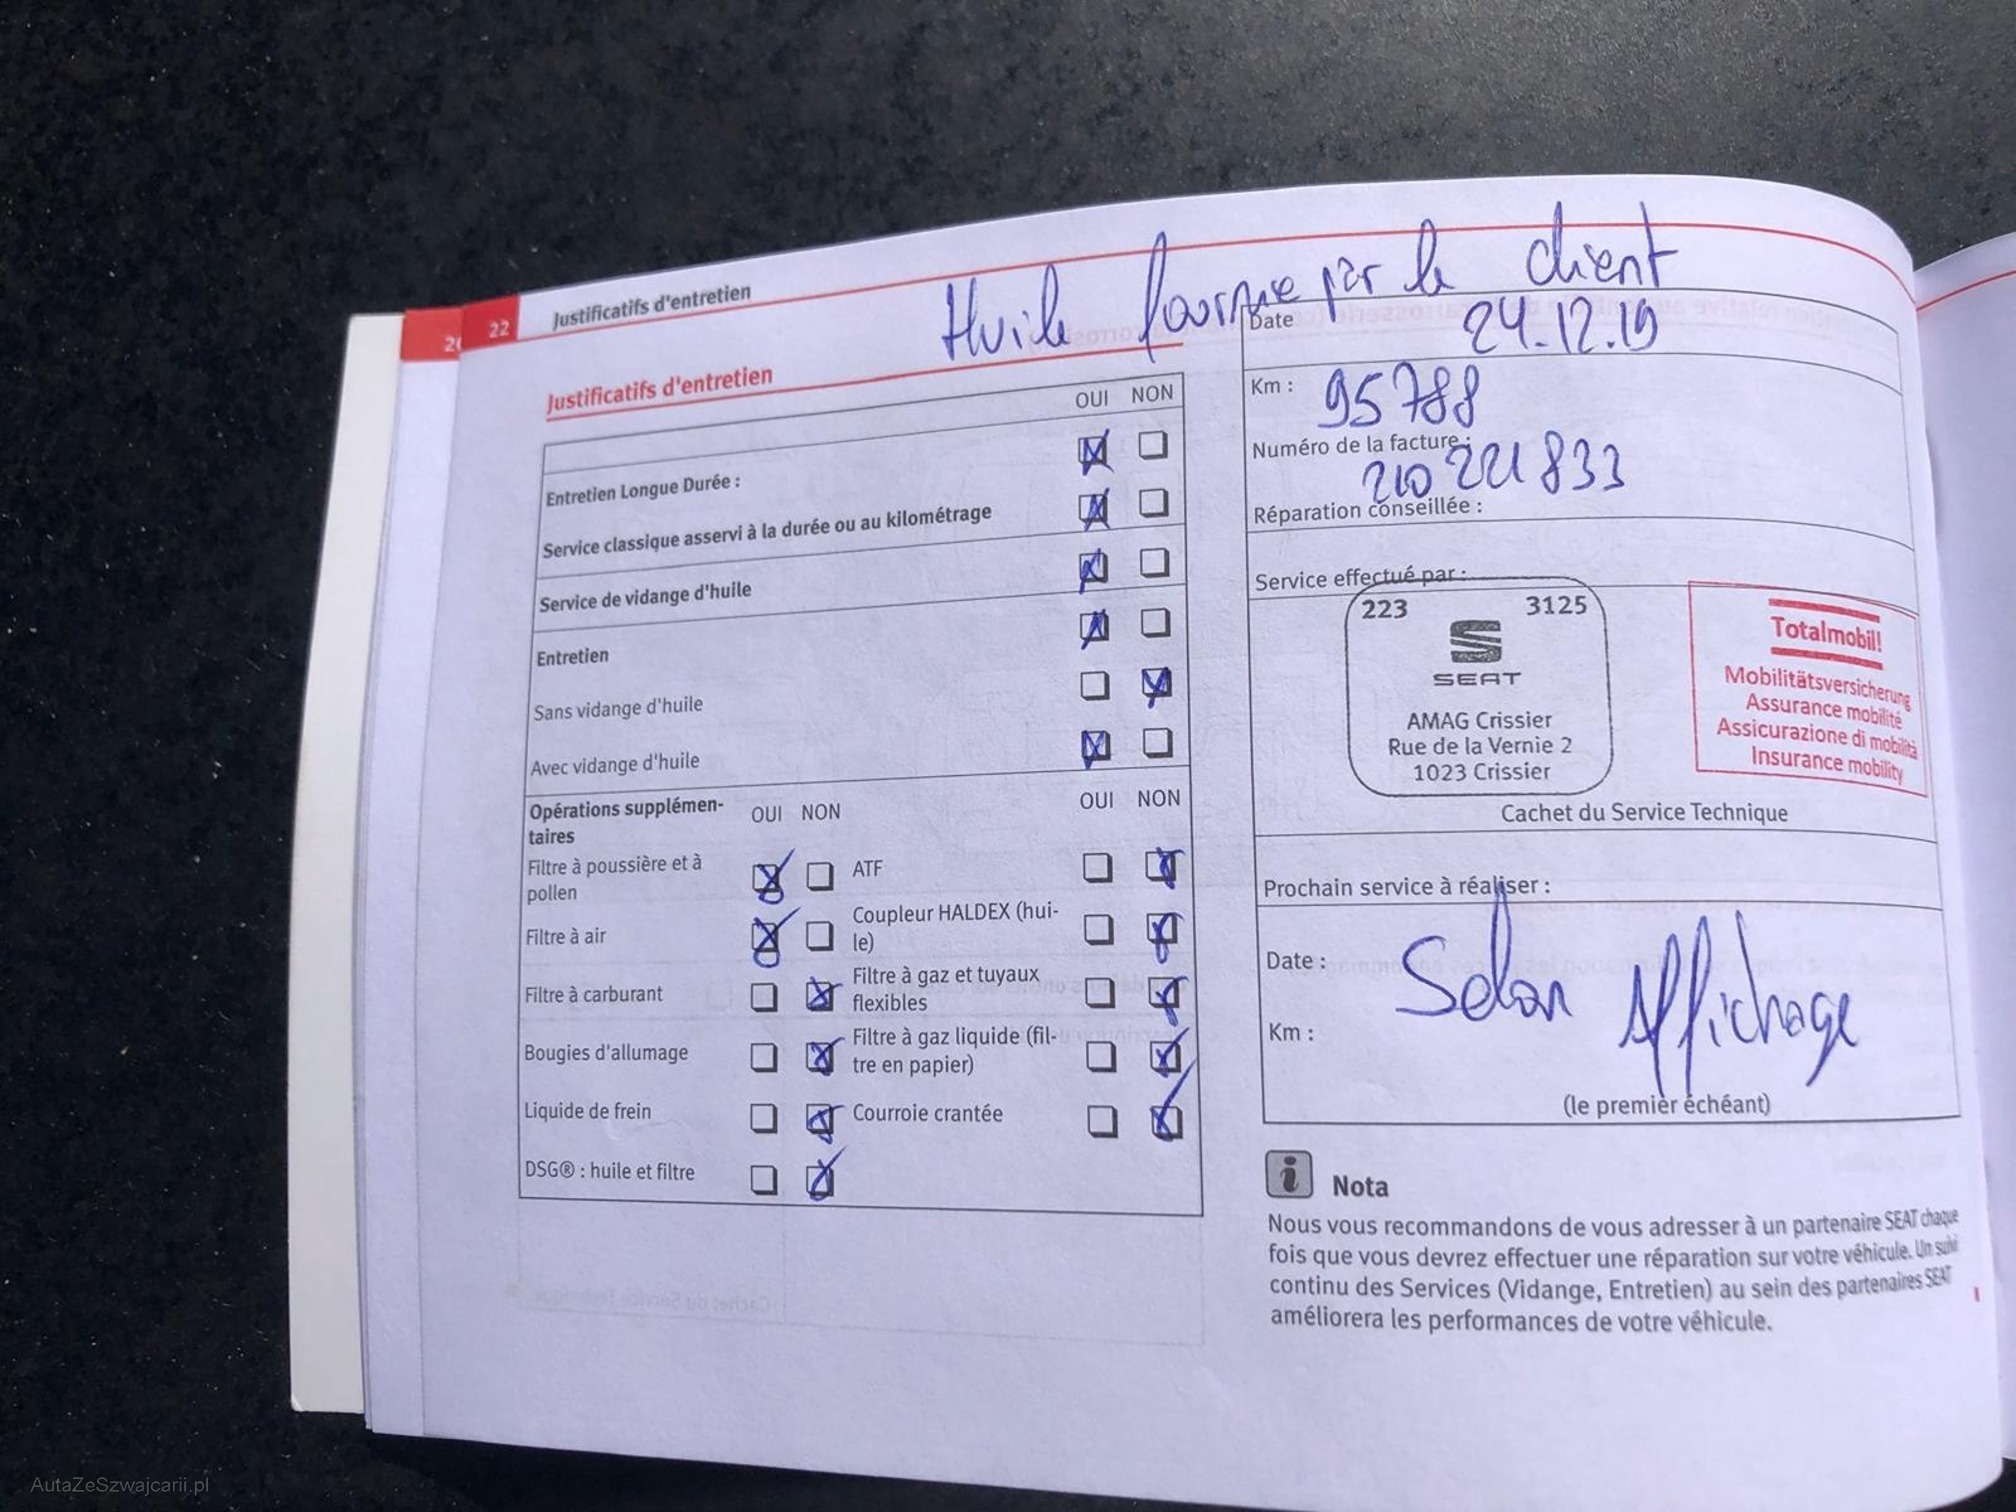 22
Justificatifs d'entretien
Huile fournie par le client
Justificatifs d'entretien
OUI NON
Entretien Longue Durée :
Service classique asservi à la durée ou au kilométrage
Service de vidange d'huile
Entretien
Sans vidange d'huile
Avec vidange d'huile
Opérations supplémen-
taires
OUI NON
OUI NON
Filtre à poussière et à
pollen
ATF
Filtre à air
Coupleur HALDEX (hui-
le)
Filtre à carburant
Filtre à gaz et tuyaux
flexibles
Bougies d'allumage
Filtre à gaz liquide (fil-
tre en papier)
Liquide de frein
Courroie crantée
DSG® : huile et filtre
Date
24.12.19
Km : 95788
Numéro de la facture :
210221833
Réparation conseillée :
Service effectué par :
223 3125
SEAT
AMAG Crissier
Rue de la Vernie 2
1023 Crissier
Totalmobil!
Mobilitätsversicherung
Assurance mobilité
Assicurazione di mobilità
Insurance mobility
Cachet du Service Technique
Prochain service à réaliser :
Date :
Selon Affichage
Km :
(le premier échéant)
Nota
Nous vous recommandons de vous adresser à un partenaire SEAT chaque
fois que vous devrez effectuer une réparation sur votre véhicule. Un suivi
continu des Services (Vidange, Entretien) au sein des partenaires SEAT
améliorera les performances de votre véhicule.
AutaZeSzwajcarii.pl